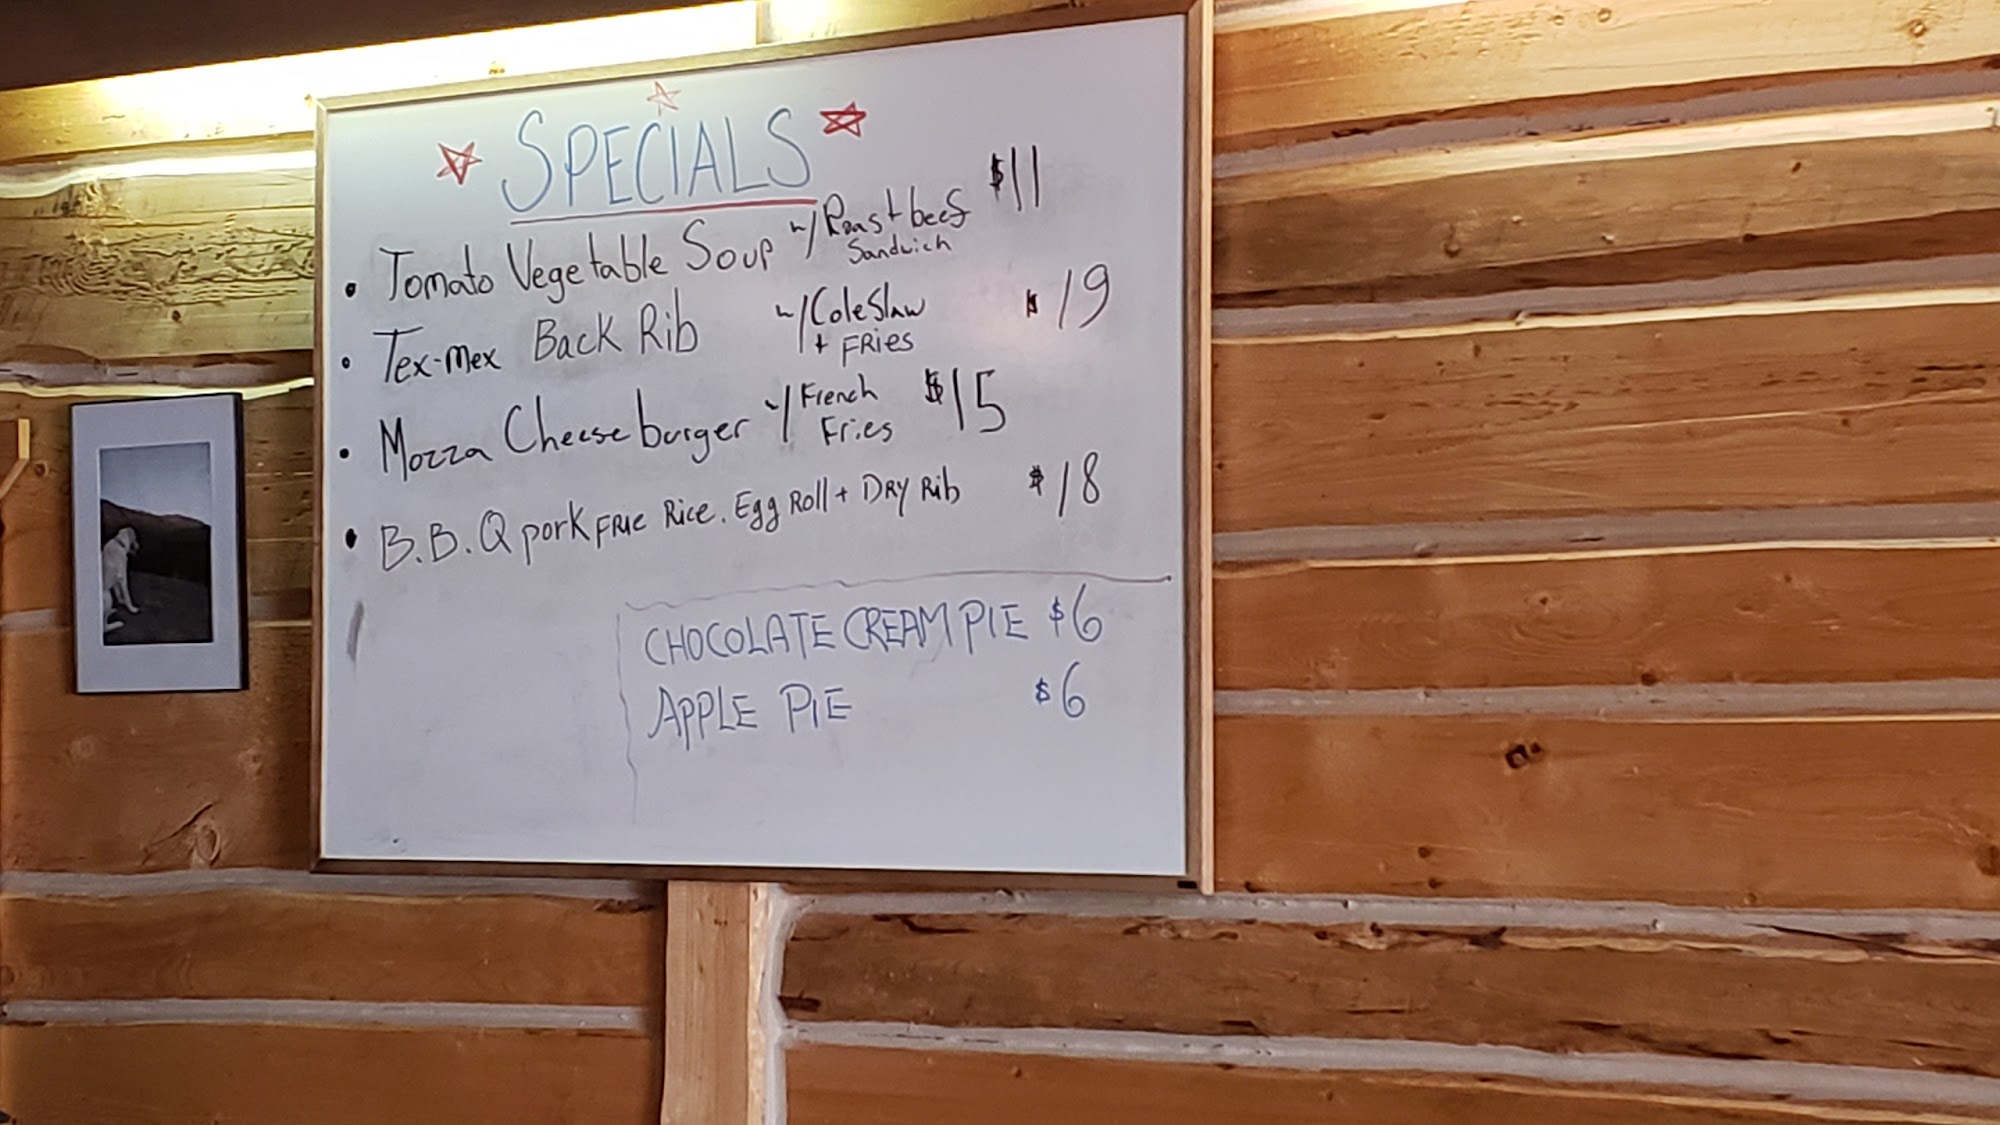 SPECIALS
• Tomato Vegetable Soup w/ Roast beef $11
Sandwich
• Tex-Mex Back Rib w/ ColeSlaw $19
+ FRies
• Mozza Cheeseburger w/ French $15
Fries
• B.B.Q pork FRIE Rice. Egg Roll + DRY Rib $18
CHOCOLATE CREAM PIE $6
APPLE PIE $6